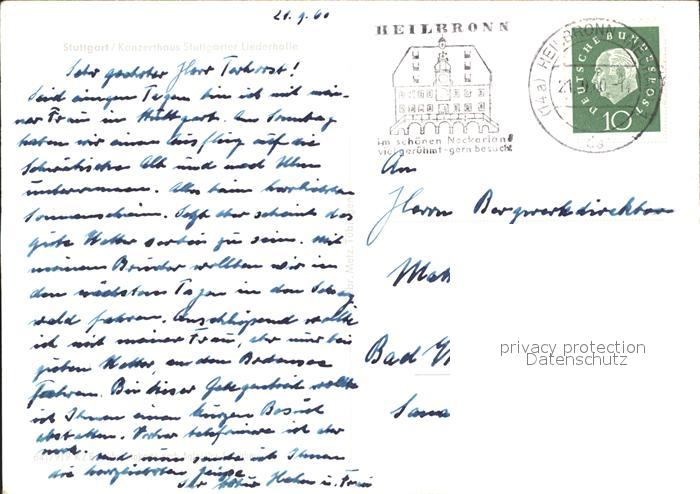 21.9.60
Stuttgart / Konzerthaus Stuttgarter Liederhalle
Sehr geehrter Herr Terhorst!
Seid einigen Tagen bin ich mit mei-
ner Frau in Stuttgart. Am Sonntag
haben wir einen Ausflug auf die
Schwäbische Alb und nach Ulm
unternommen. Alles beim herrlichsten
Sonnenschein. Jetzt aber scheint das
gute Wetter vorbei zu sein. Mit
meinem Bruder wollten wir in
den nächsten Tagen in den Schwarz
wald fahren. Anschließend wollte
ich mit meiner Frau, aber nur bei
gutem Wetter, an den Bodensee
fahren. Bei dieser Gelegenheit wollte
ich Ihnen einen kurzen Besuch
abstatten. Vorher telefoniere ich aber
noch und nun sende ich Ihnen
die herzlichsten Grüße
Ihr Hahn u. Frau
HEILBRONN
im schönen Neckarland
viel gerühmt - gern besucht
(14a) HEILBRONN
DEUTSCHE BUNDESPOST
10
An
Herrn Bergwerksdirektor
Bad
privacy protection
Datenschutz